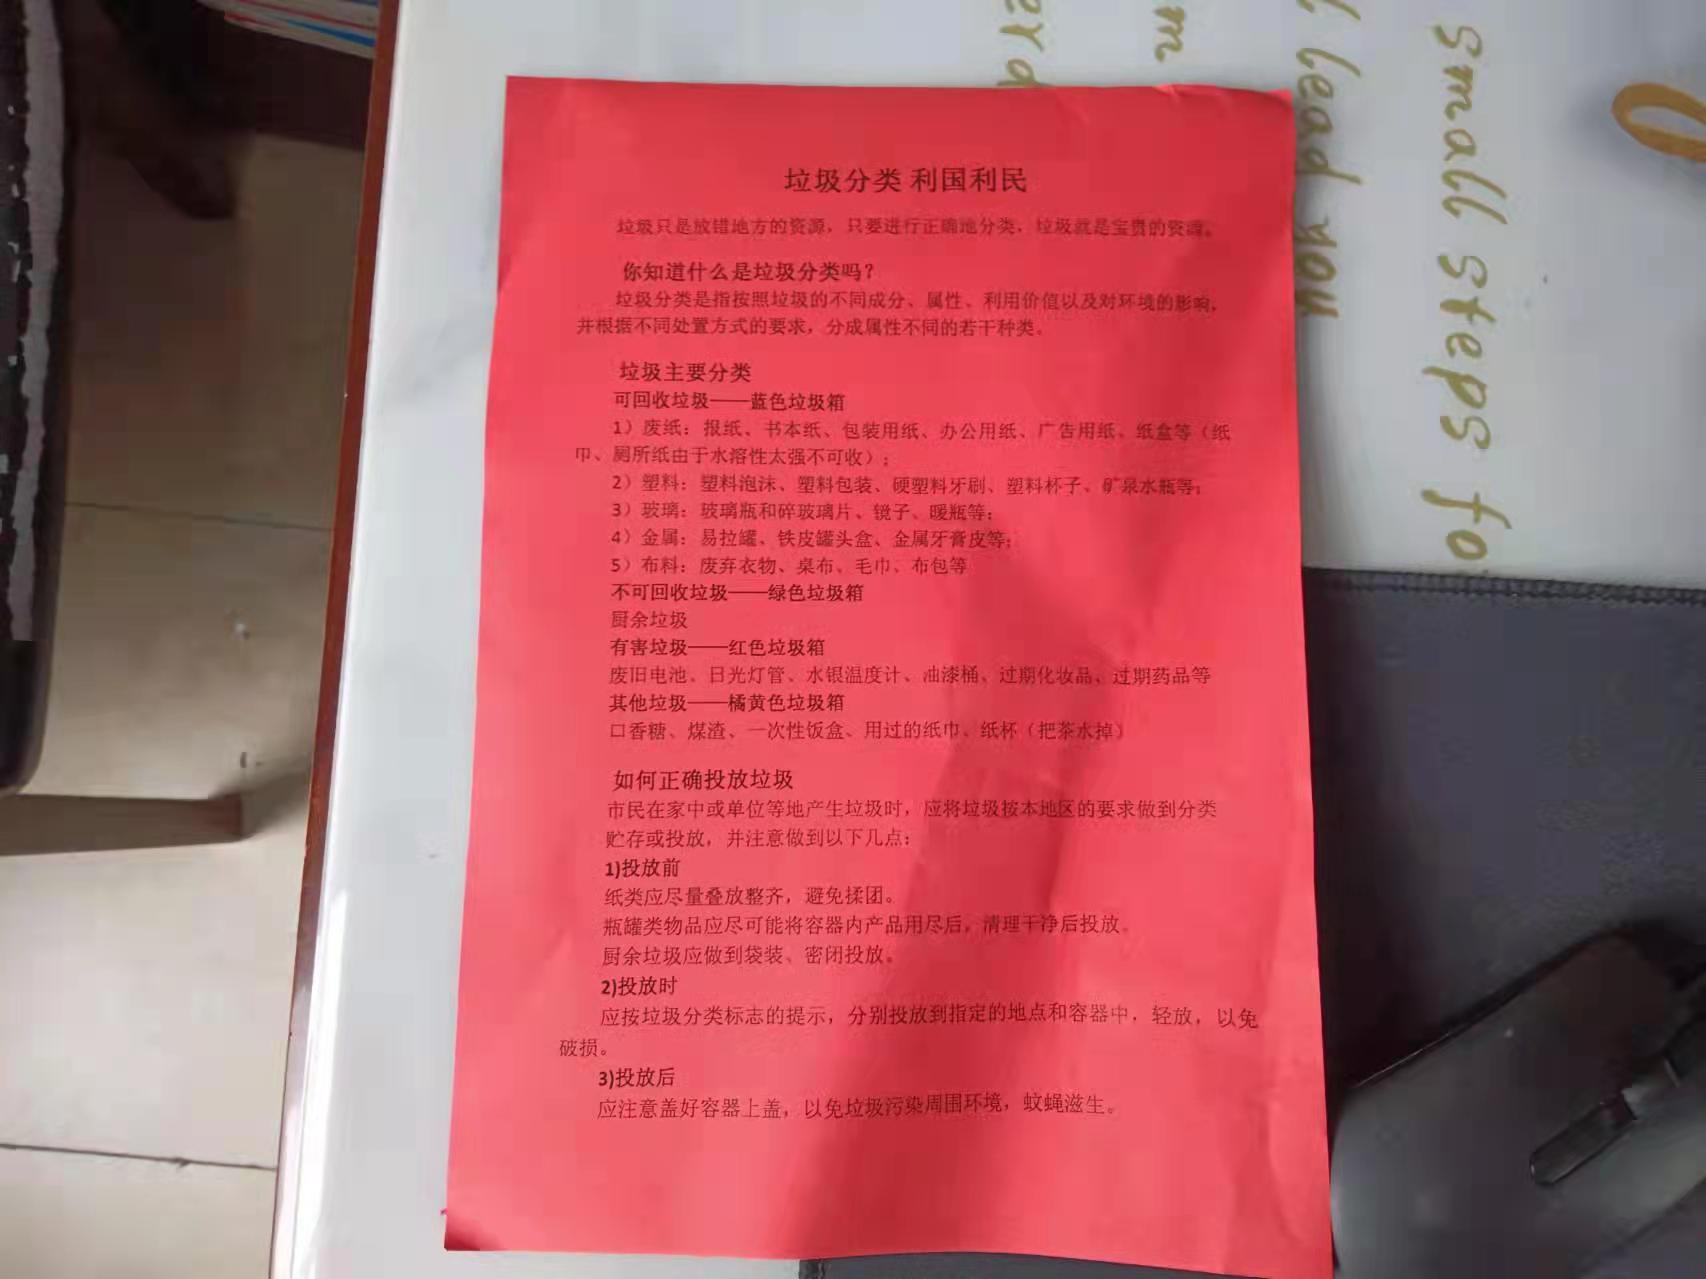 垃圾分类 利国利民
垃圾只是放错地方的资源，只要进行正确地分类，垃圾就是宝贵的资源。
你知道什么是垃圾分类吗？
垃圾分类是指按照垃圾的不同成分、属性、利用价值以及对环境的影响，
并根据不同处置方式的要求，分成属性不同的若干种类。
垃圾主要分类
可回收垃圾——蓝色垃圾箱
1）废纸：报纸、书本纸、包装用纸、办公用纸、广告用纸、纸盒等（纸
巾、厕所纸由于水溶性太强不可收）；
2）塑料：塑料泡沫、塑料包装、硬塑料牙刷、塑料杯子、矿泉水瓶等；
3）玻璃：玻璃瓶和碎玻璃片、镜子、暖瓶等；
4）金属：易拉罐、铁皮罐头盒、金属牙膏皮等；
5）布料：废弃衣物、桌布、毛巾、布包等
不可回收垃圾——绿色垃圾箱
厨余垃圾
有害垃圾——红色垃圾箱
废旧电池、日光灯管、水银温度计、油漆桶、过期化妆品、过期药品等
其他垃圾——橘黄色垃圾箱
口香糖、煤渣、一次性饭盒、用过的纸巾、纸杯（把茶水掉）
如何正确投放垃圾
市民在家中或单位等地产生垃圾时，应将垃圾按本地区的要求做到分类
贮存或投放，并注意做到以下几点：
1)投放前
纸类应尽量叠放整齐，避免揉团。
瓶罐类物品应尽可能将容器内产品用尽后，清理干净后投放。
厨余垃圾应做到袋装、密闭投放。
2)投放时
应按垃圾分类标志的提示，分别投放到指定的地点和容器中，轻放，以免
破损。
3)投放后
应注意盖好容器上盖，以免垃圾污染周围环境，蚊蝇滋生。
small steps
l lead you